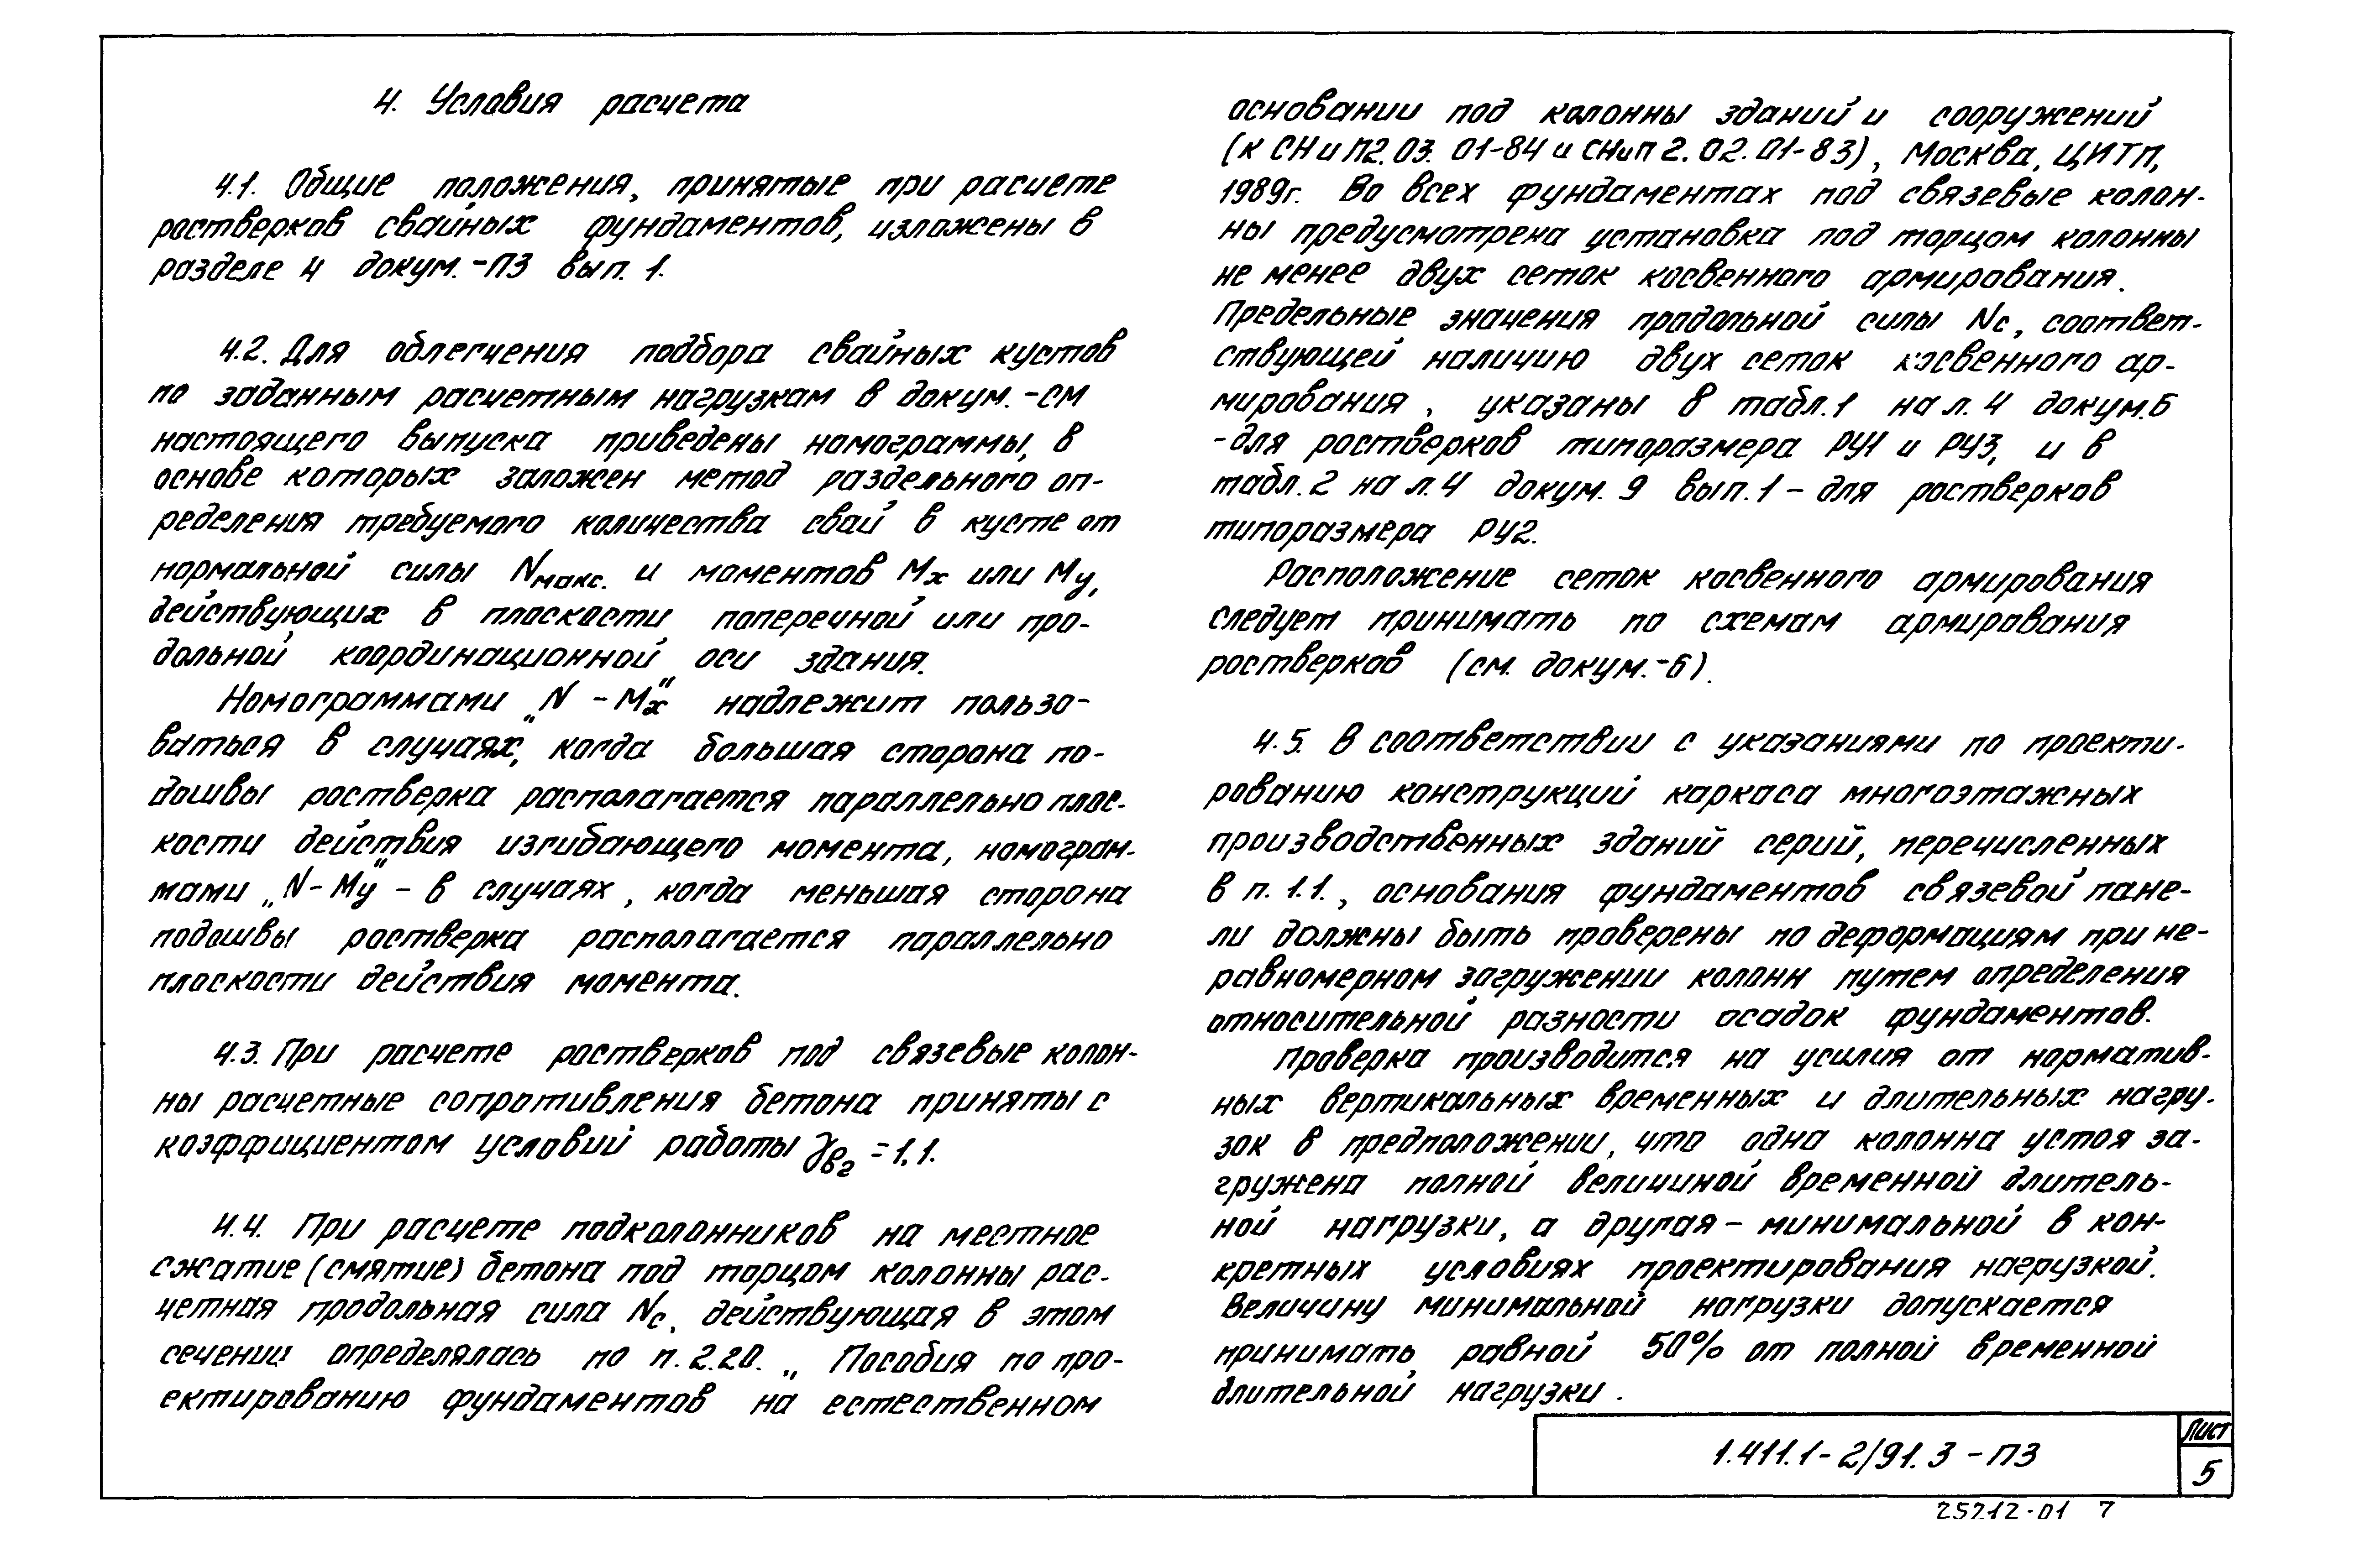 4. Условия расчета
4.1. Общие положения, принятые при расчете
ростверков свайных фундаментов, изложены в
разделе 4 докум.-ПЗ вып. 1.
4.2. Для облегчения подбора свайных кустов
по заданным расчетным нагрузкам в докум. -СМ
настоящего выпуска приведены номограммы, в
основе которых заложен метод раздельного оп-
ределения требуемого количества свай в кусте от
нормальной силы Nмакс. и моментов Mx или My,
действующих в плоскости поперечной или про-
дольной координационной оси здания.
Номограммами „N - Mx" надлежит пользо-
ваться в случаях, когда большая сторона по-
дошвы ростверка располагается параллельно плос-
кости действия изгибающего момента, номограм-
мами „N - My" - в случаях, когда меньшая сторона
подошвы ростверка располагается параллельно
плоскости действия момента.
4.3. При расчете ростверков под связевые колон-
ны расчетные сопротивления бетона приняты с
коэффициентом условий работы γв2 = 1.1.
4.4. При расчете подколонников на местное
сжатие (смятие) бетона под торцом колонны рас-
четная продольная сила Nc, действующая в этом
сечении определялась по п. 2.20. „Пособия по про-
ектированию фундаментов на естественном
основании под колонны зданий и сооружений
(к СНиП2.03. 01-84 и СНиП 2. 02. 01-83), Москва, ЦИТП,
1989г. Во всех фундаментах под связевые колон-
ны предусмотрена установка под торцом колонны
не менее двух сеток косвенного армирования.
Предельные значения продольной силы Nc, соответ-
ствующей наличию двух сеток косвенного ар-
мирования, указаны в табл.1 на л. 4 докум.6
-для ростверков типоразмера РУ1 и РУ3, и в
табл. 2 на л. 4 докум. 9 вып.1 - для ростверков
типоразмера РУ2.
Расположение сеток косвенного армирования
следует принимать по схемам армирования
ростверков (см. докум.-6).
4.5. В соответствии с указаниями по проекти-
рованию конструкций каркаса многоэтажных
производственных зданий серий, перечисленных
в п. 1.1., основания фундаментов связевой пане-
ли должны быть проверены по деформациям при не-
равномерном загружении колонн путем определения
относительной разности осадок фундаментов.
Проверка производится на усилия от норматив-
ных вертикальных временных и длительных нагру-
зок в предположении, что одна колонна устоя за-
гружена полной величиной временной длитель-
ной нагрузки, а другая - минимальной в кон-
кретных условиях проектирования нагрузкой.
Величину минимальной нагрузки допускается
принимать равной 50% от полной временной
длительной нагрузки.
1.411.1-2/91.3 - ПЗ
Лист
5
25212-01 7